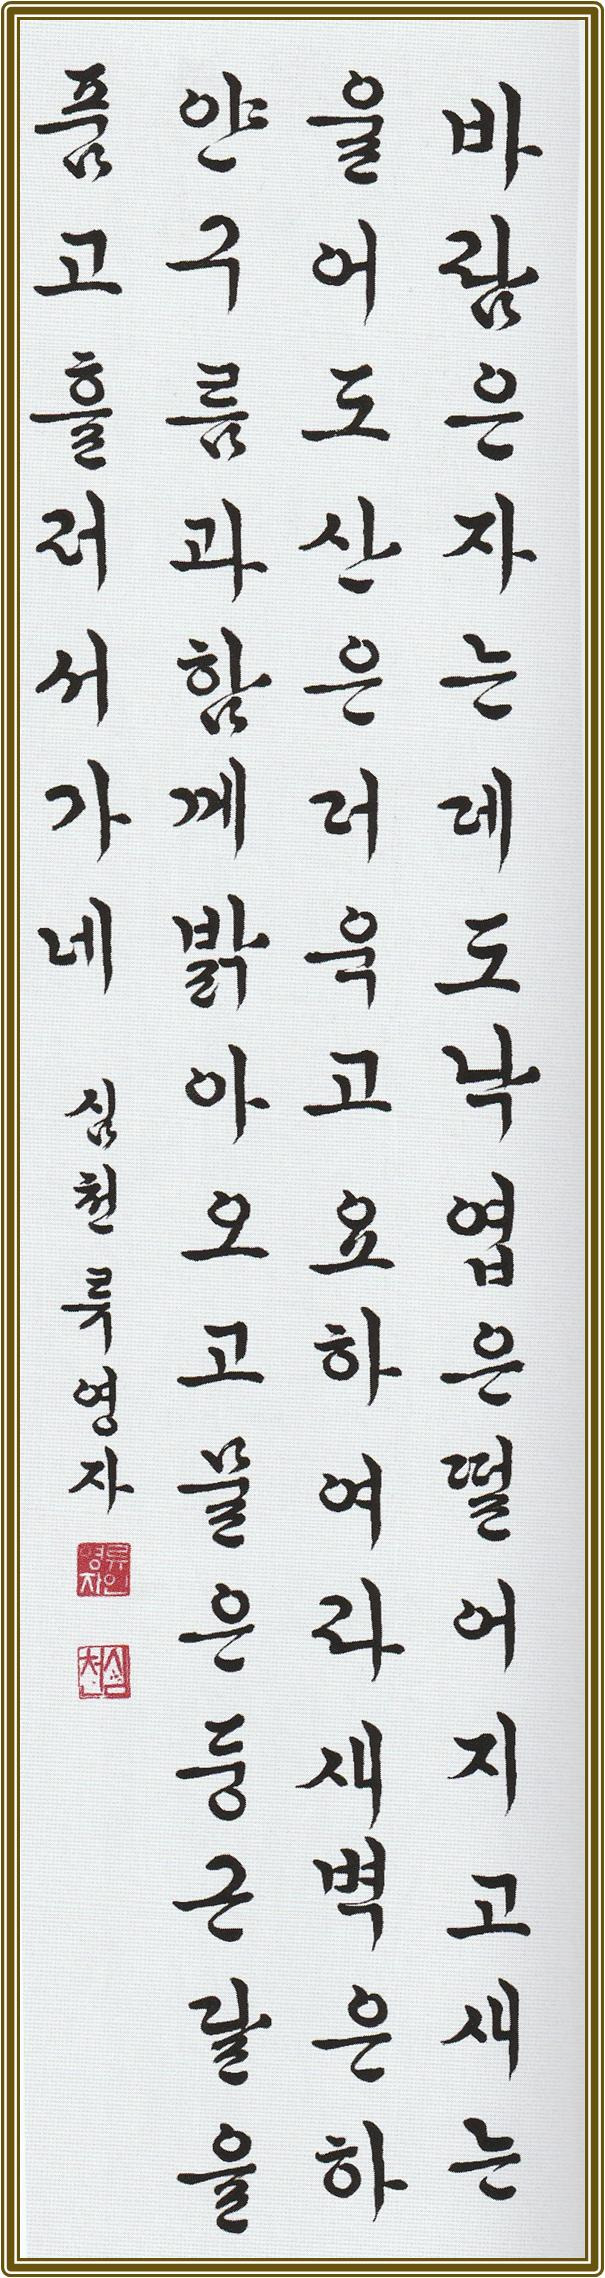 바람은자는데도낙엽은떨어지고새는
울어도산은더욱고요하여라새벽은하
얀구름과함께밝아오고물은둥근달을
품고흘러서가네
심천류영자
류인영자
심천